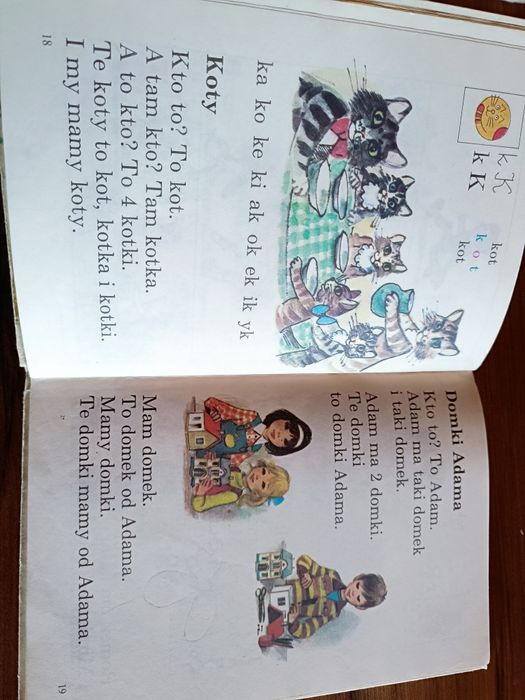 k K
k K
kot
k o t
kot
ka ko ke ki ak ok ek ik yk
Koty
Kto to? To kot.
A tam kto? Tam kotka.
A to kto? To 4 kotki.
Te koty to kot, kotka i kotki.
I my mamy koty.
18
Domki Adama
Kto to? To Adam.
Adam ma taki domek
i taki domek.
Adam ma 2 domki.
Te domki
to domki Adama.
Mam domek.
To domek od Adama.
Mamy domki.
Te domki mamy od Adama.
19